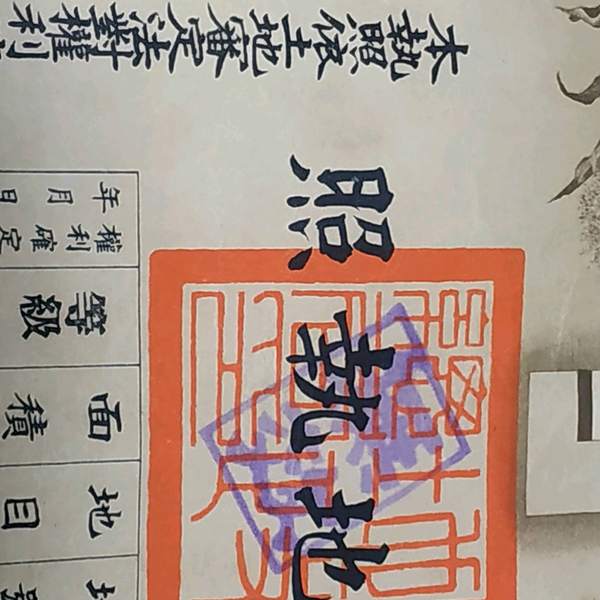 地執照
地
地目
面積
等級
權利確定
年月日
本執照依土地審定法對權利